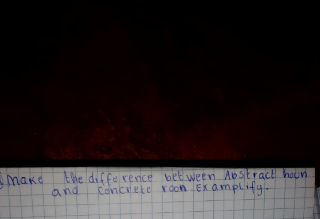 Make the difference between Abstract houn
and concrete noon Examplify.